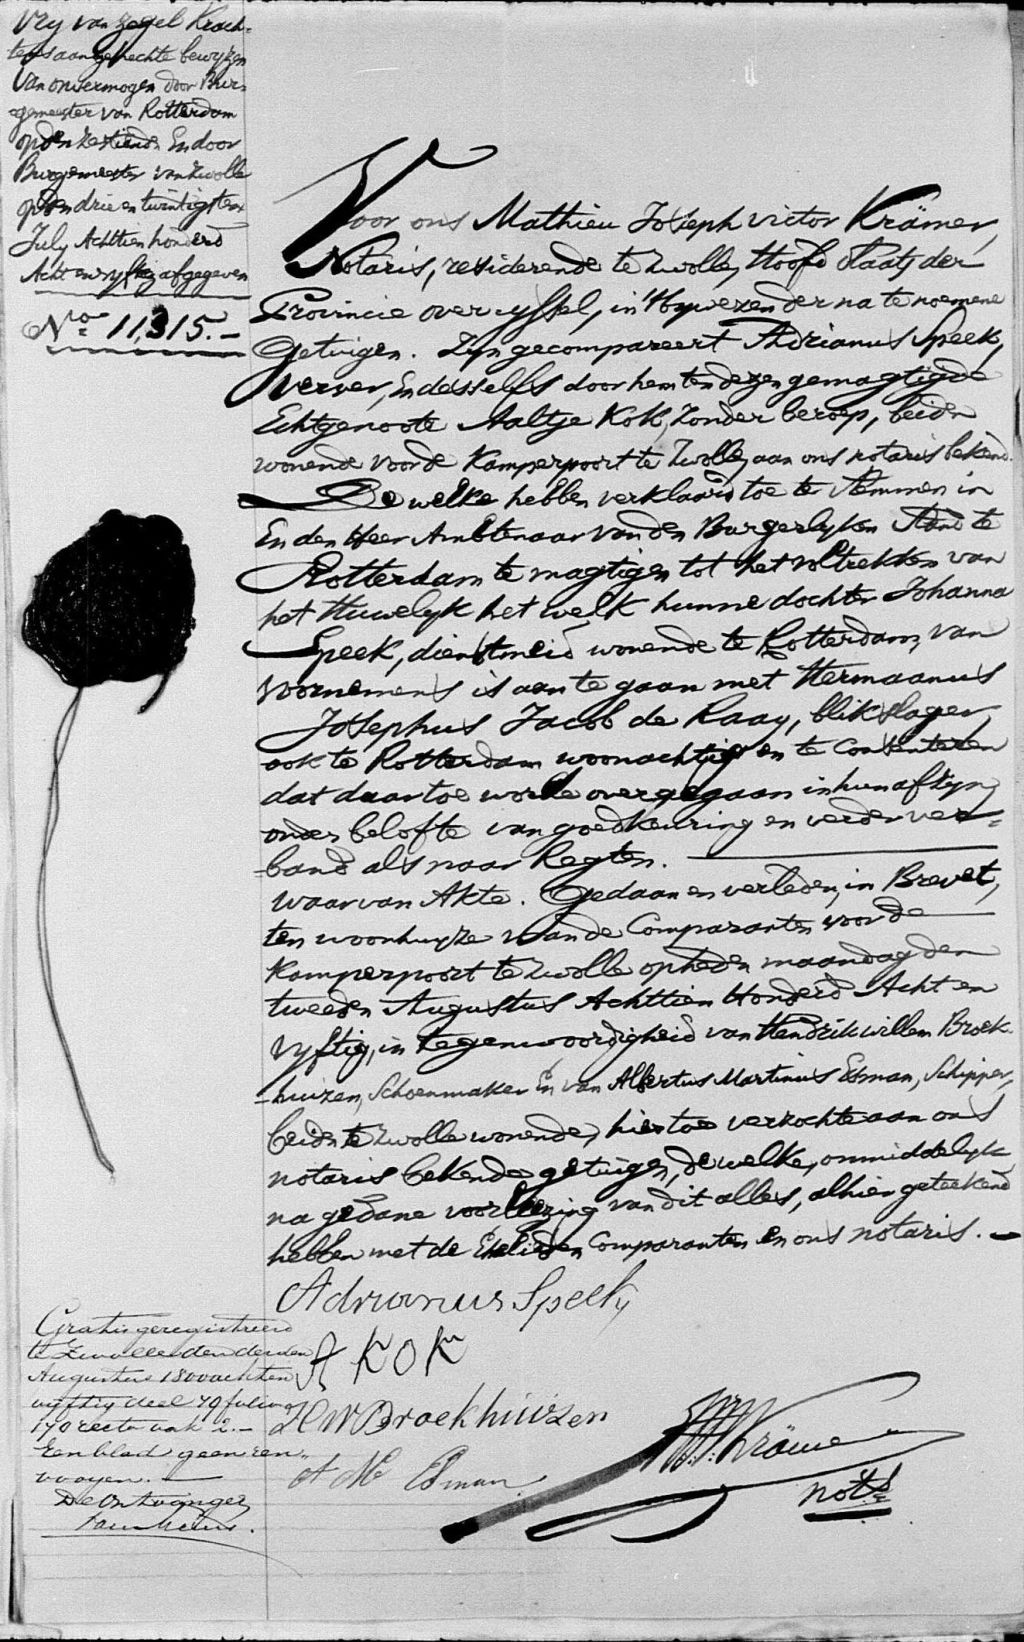 Vry van zegel Krach-
tens aangehechte bewyzen
van onvermogen door Bur-
gemeester van Rotterdam
op den zestienden En door
Burgemeester van Zwolle
op den drie en twintigsten
July Achttien honderd
Acht en vyftig afgegeven
No 11,315.-
Voor ons Mathieu Joseph Victor Krämer,
Notaris, residerende te Zwolle, Hoofd Plaats der
Provincie overyssel, in bywezen der na te noemene
Getuigen. Zyn gecompareert Adrianus Speek,
Verver, En desselfs door hem ten dezen gemagtigde
Echtgenoote Aaltje Kok, zonder beroep, beiden
wonende voor de Kamperpoort te Zwolle, aan ons notaris bekend.
De welke hebben verklaard toe te stemmen in
En den Heer Ambtenaar van den Burgerlyken Stand te
Rotterdam te magtigen tot het voltrekken van
het Huwelyk het welk hunne dochter Johanna
Speek, dienstmeid wonende te Rotterdam, van
voornemens is aan te gaan met Hermaanus
Josephus Jacob de Raay, blikslager,
ook te Rotterdam woonachtig en te Consenteren
dat daartoe worde overgegaan in hun afzyn,
onder belofte van goedkeuring en verder ver-
-band als naar Regten.
Waarvan Akte. Gedaan en verleden, in Brevet,
ten woonhuyze van de Comparanten voor de
Kamperpoort te Zwolle op heden maandag den
tweeden Augustus Achttien Honderd Acht en
vyftig, in tegenwoordigheid van Hendrik willem Broek-
-huizen, Schoenmaker En van Albertus Martinus Esman, Schipper,
beiden te Zwolle wonende, hiertoe verzochte aan ons
notaris bekende getuigen, dewelke, onmiddelyk
na gedane voorlezing van dit alles, alhier geteekend
hebben met de Echelieden Comparanten en ons notaris. -
Adrianus Speek
A KOK
H W Broekhuizen
A M Esman.
Krämer
nots
Gratis geregistreerd
te Zwolle den derden
Augustus 1800 acht en
vyftig deel 79 folio
170 recto vak 2.-
Een blad geen ren-
vooyen.
De Ontvanger,